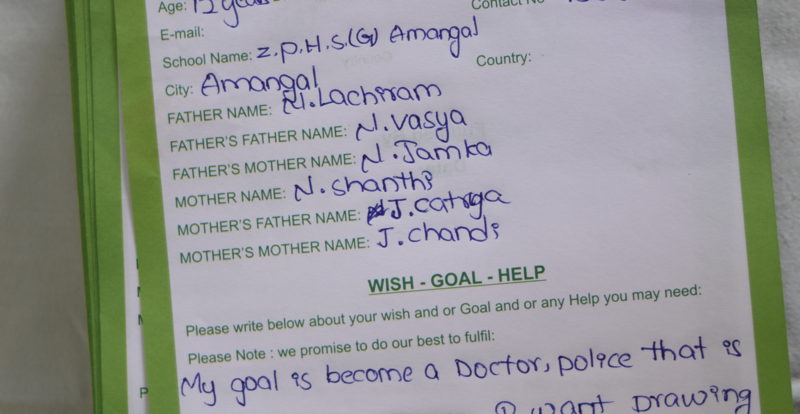 Age: 12 years Contact No
E-mail:
School Name: Z.P.H.S(G) Amangal
City: Amangal Country:
FATHER NAME: N.Lachiram
FATHER'S FATHER NAME: N.vasya
FATHER'S MOTHER NAME: N.Jamka
MOTHER NAME: N.shanthi
MOTHER'S FATHER NAME: J.catriga
MOTHER'S MOTHER NAME: J.chandi
WISH - GOAL - HELP
Please write below about your wish and or Goal and or any Help you may need:
Please Note : we promise to do our best to fulfil:
My goal is become a Doctor, police that is
I want Drawing